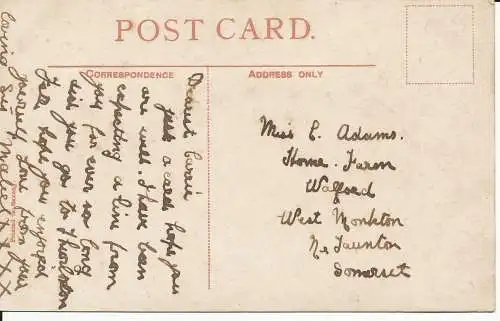 POST CARD.
CORRESPONDENCE
ADDRESS ONLY
Dearest Carrie
just a card hope you
are well. I have been
expecting a line from
you for ever so long
did you go to
Fair, hope you enjoyed
yourself, Love from your
loving Sis Mabel X X X
Miss C. Adams.
Home Farm
Walford
West Monkton
Nr Taunton
Somerset